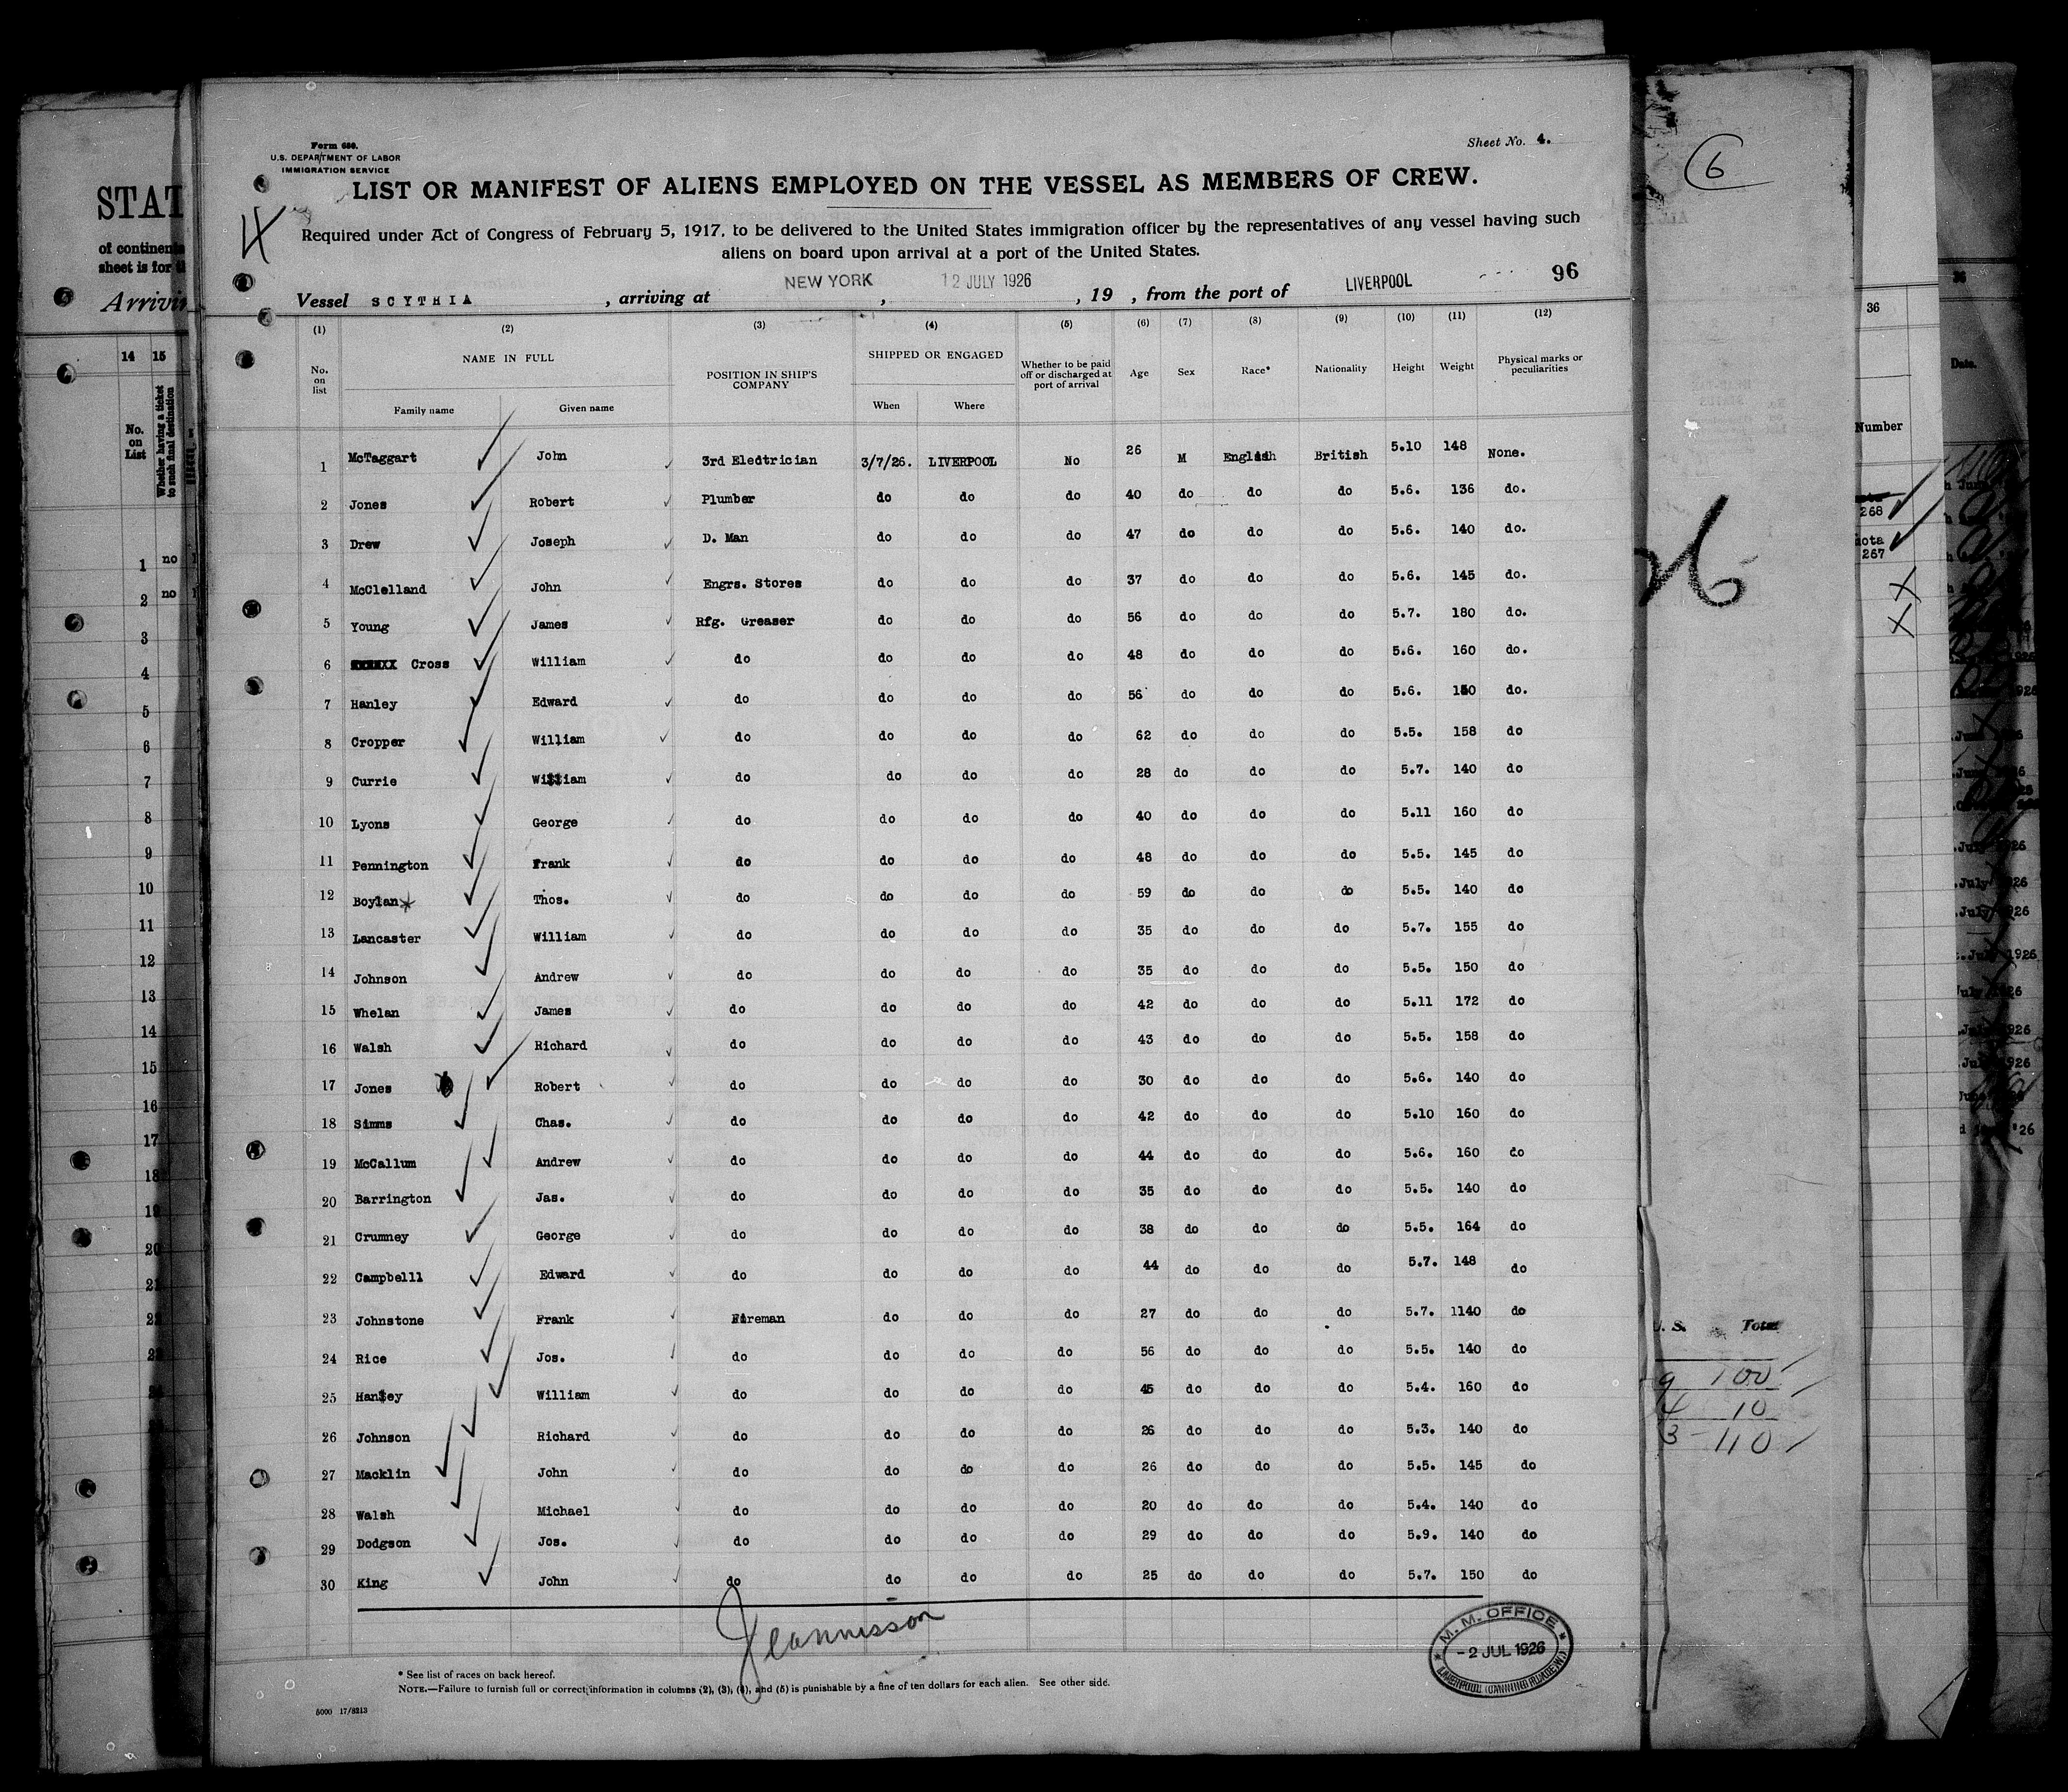 Form 680.
U.S. DEPARTMENT OF LABOR
IMMIGRATION SERVICE
Sheet No. 4.
LIST OR MANIFEST OF ALIENS EMPLOYED ON THE VESSEL AS MEMBERS OF CREW.
Required under Act of Congress of February 5, 1917, to be delivered to the United States immigration officer by the representatives of any vessel having such
aliens on board upon arrival at a port of the United States.
96
Vessel SCYTHIA , arriving at NEW YORK , 12 JULY 1926 , 19 , from the port of LIVERPOOL
(1) (2) (3) (4) (5) (6) (7) (8) (9) (10) (11) (12)
No. on list NAME IN FULL POSITION IN SHIP'S COMPANY SHIPPED OR ENGAGED Whether to be paid off or discharged at port of arrival Age Sex Race* Nationality Height Weight Physical marks or peculiarities
Family name Given name When Where
1 McTaggart John 3rd Eledtrician 3/7/26. LIVERPOOL No 26 M English British 5.10 148 None.
2 Jones Robert Plumber do do do 40 do do do 5.6. 136 do.
3 Drew Joseph D. Man do do do 47 do do do 5.6. 140 do.
4 McClelland John Engrs. Stores do do do 37 do do do 5.6. 145 do.
5 Young James Rfg. Greaser do do do 56 do do do 5.7. 180 do.
6 Cross William do do do do 48 do do do 5.6. 160 do.
7 Hanley Edward do do do do 56 do do do 5.6. 150 do.
8 Cropper William do do do do 62 do do do 5.5. 158 do
9 Currie William do do do do 28 do do do 5.7. 140 do
10 Lyons George do do do do 40 do do do 5.11 160 do
11 Pennington Frank do do do do 48 do do do 5.5. 145 do
12 Boylan Thos. do do do do 59 do do do 5.5. 140 do
13 Lancaster William do do do do 35 do do do 5.7. 155 do
14 Johnson Andrew do do do do 35 do do do 5.5. 150 do
15 Whelan James do do do do 42 do do do 5.11 172 do
16 Walsh Richard do do do do 43 do do do 5.5. 158 do
17 Jones Robert do do do do 30 do do do 5.6. 140 do
18 Simms Chas. do do do do 42 do do do 5.10 160 do
19 McCallum Andrew do do do do 44 do do do 5.6. 160 do
20 Barrington Jas. do do do do 35 do do do 5.5. 140 do
21 Crumney George do do do do 38 do do do 5.5. 164 do
22 Campbelll Edward do do do do 44 do do do 5.7. 148 do
23 Johnstone Frank Fireman do do do 27 do do do 5.7. 1140 do
24 Rice Jos. do do do do 56 do do do 5.5. 140 do
25 Hanley William do do do do 45 do do do 5.4. 160 do
26 Johnson Richard do do do do 26 do do do 5.3. 140 do
27 Macklin John do do do do 26 do do do 5.5. 145 do
28 Walsh Michael do do do do 20 do do do 5.4. 140 do
29 Dodgson Jos. do do do do 29 do do do 5.9. 140 do
30 King John do do do do 25 do do do 5.7. 150 do
M. M. OFFICE
-2 JUL 1926
* See list of races on back hereof.
NOTE.—Failure to furnish full or correct information in columns (2), (3), (4), and (5) is punishable by a fine of ten dollars for each alien. See other side.
5000 17/8213
STAT
of continent
sheet is for
Arrivin
14 15
No. on List
Whether having a ticket to such final destination
1 no
2 no
3
4
5
6
7
8
9
10
11
12
13
14
15
16
17
18
19
20
21
22
23
6
26
Total
100
10
110
36
Number
268
267
Date.